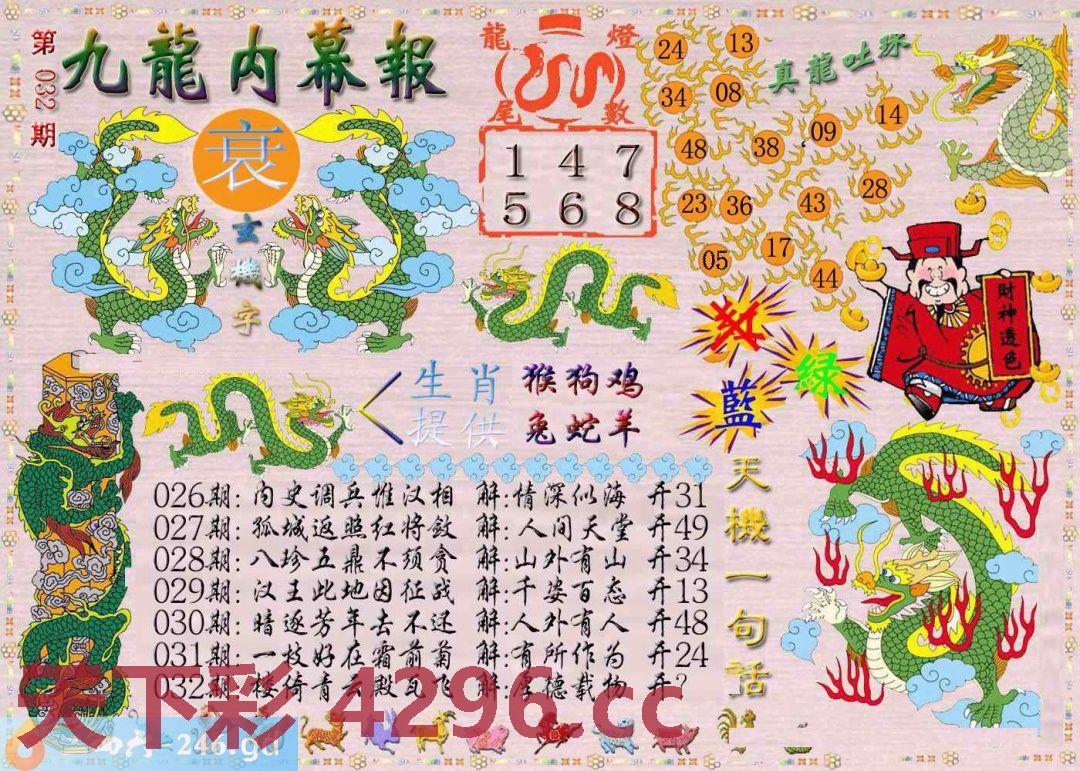 第032期
九龍内幕報
衰
玄機字
龍燈
尾數
1 4 7
5 6 8
真龍吐珠
24 13
34 08
48 38 09 14
23 36 43 28
05 17 44
財神透色
红
綠
藍
生肖 猴狗鸡
提供 兔蛇羊
天機一句話
026期: 内史调兵惟汉相 解:情深似海 开31
027期: 孤城返照红将敛 解:人间天堂 开49
028期: 八珍五鼎不须贪 解:山外有山 开34
029期: 汉王此地因征战 解:千姿百态 开13
030期: 暗逐芳年去不还 解:人外有人 开48
031期: 一枝好在霜前菊 解:有所作为 开24
032期: 楼倚青云殿瓦飞 解:厚德载物 开?
天下彩 4296.cc
=246.gd